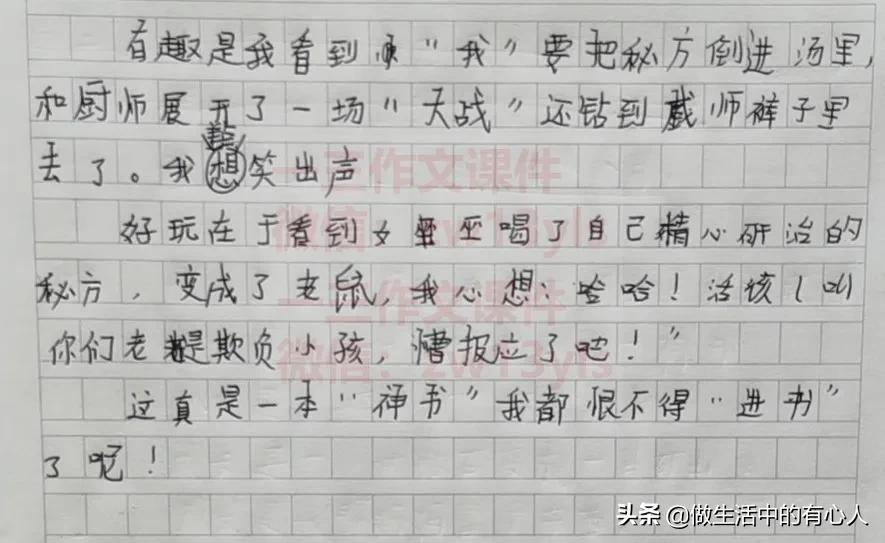 有趣是我看到 "我"要把秘方倒进汤里,
和厨师展开了一场"大战"还钻到 师裤子里
去了。我想笑出声
好玩在于看到女巫喝了自己精心研治的
秘方,变成了老鼠,我心想:哈哈!活该!叫
你们老是欺负小孩,遭报应了吧!"
这真是一本"神书"我都恨不得"进书"
了呢!
一三作文课件
微信:zw13yls
一三作文课件
微信:zw13yls
头条 @做生活中的有心人